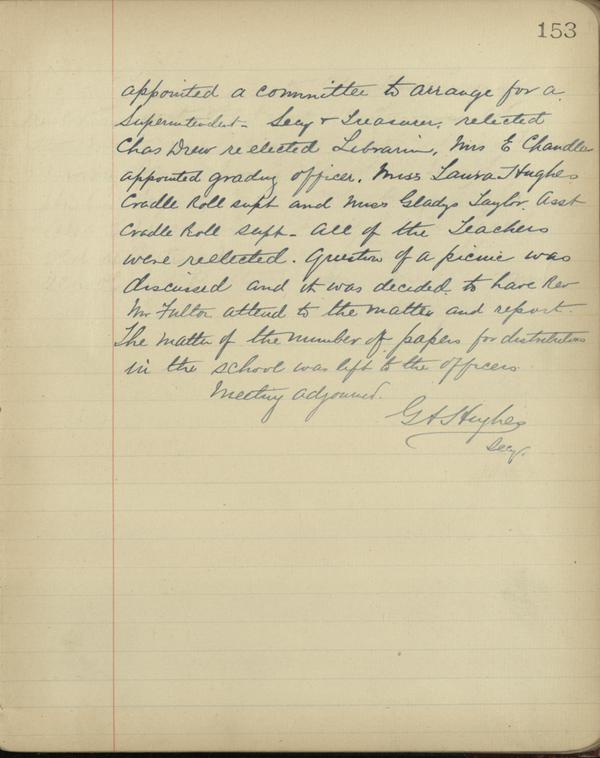 153
appointed a committee to arrange for a
Superintendent - Secy & Treasurer, relected
Chas Drew re elected Librarin, Mrs E Chandler
appointed grading officer. Miss Laura Hughes
Cradle Roll supt and Miss Gladys Taylor Asst
Cradle Roll supt - All of the Teachers
were reelected. Question of a picnic was
discussed and it was decided to have Rev
Mr Fulton attend to the matter and report.
The matter of the number of papers for distribution
in the school was left to the officers
Meeting adjourned.
G A Hughes
Secy.